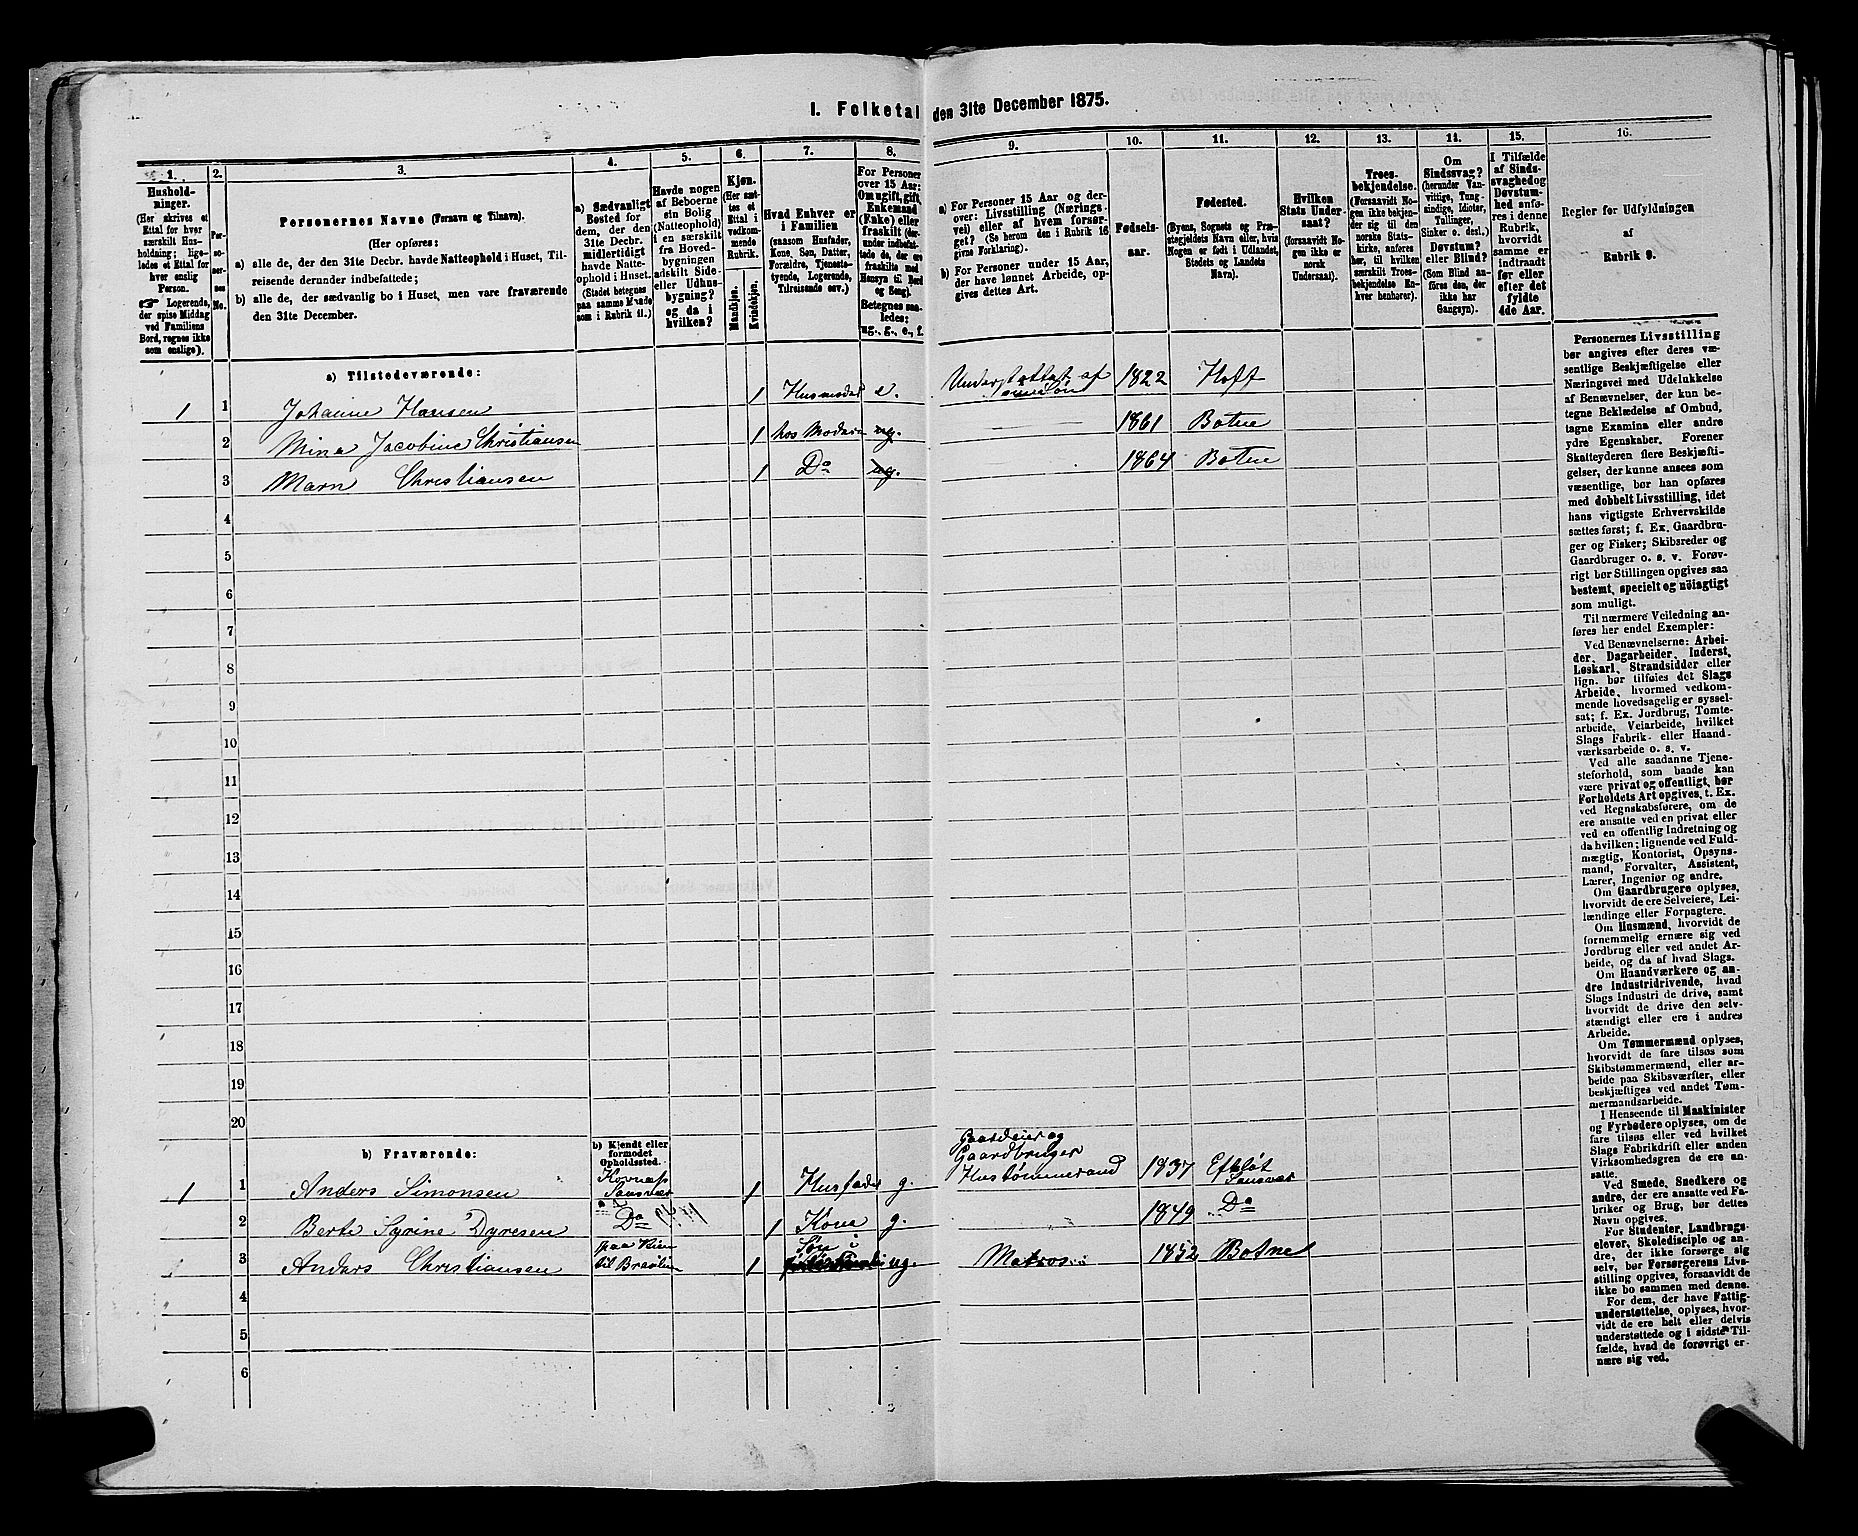 I. Folketal den 31te December 1875.
1. 2. 3. 4. 5. 6. 7. 8. 9. 10. 11. 12. 13. 14. 15. 16.
Hushold-
ninger.
(Her skrives et
Ettal for hver
særskilt Hus-
holdning; lige-
ledes et Ettal for
hver enslig
Person.
☞ Logerende,
der spise Middag
ved Familiens
Bord, regnes ikke
som enslige).
Per-
so-
ner-
nes
No.
Personernes Navne (Fornavn og Tilnavn).
(Her opføres:
a) alle de, der den 31te Decbr. havde Natteophold i Huset, Til-
reisende derunder indbefattede;
b) alle de, der sædvanlig bo i Huset, men vare fraværende
den 31te December.
a) Sædvanligt
Bosted for
dem, der den
31te Decbr.
midlertidigt
havde Natte-
ophold i Huset.
(Stedet betegnes
paa samme Maade
som i Rubrik 11.)
Havde nogen
af Beboerne
sin Bolig
(Natteophold)
i en særskilt
fra Hoved-
bygningen
adskilt Side-
eller Udhus-
bygning?
og da i
hvilken?
Kjøn.
(Her sæt-
tes et
Ettal i
vedkom-
mende
Rubrik.
Mandkjøn.
Kvindekjøn.
Hvad Enhver er
i Familien
(saasom Husfader,
Kone, Søn, Datter,
Forældre, Tjeneste-
tyende, Logerende,
Tilreisende osv.)
For Personer
over 15 Aar:
Om ugift, gift,
Enkemand
(Enke) eller
fraskilt (der-
under indbefat-
tede de, der ere
fraskilte med
Hensyn til Bord
og Seng).
Betegnes saa-
ledes:
ug., g., e., f.
a) For Personer 15 Aar og der-
over: Livsstilling (Nærings-
vei) eller af hvem forsør-
get? (Se herom den i Rubrik 16
givne Forklaring).
b) For Personer under 15 Aar,
der have lønnet Arbeide, op-
gives dettes Art.
Fødsels-
aar.
Fødested.
(Byens, Sognets og Præ-
stegjeldets Navn eller, hvis
Nogen er født i Udlandet,
Stedets og Landets
Navn).
Hvilken
Stats Under-
saat?
(forsaavidt No-
gen ikke er
norsk
Undersaat).
Troes-
bekjendelse.
(Forsaavidt No-
gen ikke bekjen-
der sig til den
norske Stats-
kirke, anføres
her, til hvilken
særskilt Troes-
bekjendelse En-
hver henhører).
Om
Sindssvag?
(herunder Van-
vittige, Tung-
sindige, Idioter,
Tullinger,
Sinker o. desl.)
Døvstum?
eller Blind?
(Som Blind an-
føres den, der
ikke har
Gangsyn).
I Tilfælde
af Sinds-
svaghed og
Døvstum-
hed anfø-
res i denne
Rubrik,
hvorvidt
samme er
indtraadt
før eller
efter det
fyldte
4de Aar.
Regler for Udfyldningen
af
Rubrik 9.
a) Tilstedeværende:
1 1 Johanne Hansen 1 Husmoder e. Understøttet af 1822 Hoff
2 Mina Jacobine Christiansen 1 hos Moderen ug. 1861 Botne
3 Marn Christiansen 1 Do ug. 1864 Botne
4
5
6
7
8
9
10
11
12
13
14
15
16
17
18
19
20
b) Fraværende:
b) Kjendt eller
formodet
Opholdssted.
Gaardeier og
Gaardbruger
1 1 Anders Simonsen Sansvær 1 Husfader g. Hustømmermand 1837 Efteløt
Sansvær
2 Berte Syrine Dyresen Do 1 Kone g. 1849 Do
3 Anders Christiansen 1 Søn ug. Matros 1852 Botne
4
5
6
Personernes Livsstilling
bør angives efter deres væ-
sentlige Beskjæftigelse eller
Næringsvei med Udelukkelse
af Benævnelser, der kun be-
tegne Beklædelse af Ombud,
tagne Examina eller andre
ydre Egenskaber. Forener
Skatteyderen flere Beskjæfti-
gelser, der kunne ansees som
væsentlige, bør han opføres
med dobbelt Livsstilling, idet
hans vigtigste Erhvervskilde
sættes først; f. Ex. Gaardbru-
ger og Fisker; Skibsreder og
Gaardbruger o. s. v. Forøv-
rigt bør Stillingen opgives saa
bestemt, specielt og nøiagtigt
som muligt.
Til nærmere Veiledning an-
føres her endel Exempler:
Ved Benævnelserne: Arbei-
der, Dagarbeider, Inderst,
Løskarl, Strandsidder eller
lign. bør tilføies det Slags
Arbeide, hvormed vedkom-
mende hovedsagelig er syssel-
sat; f. Ex. Jordbrug, Tomte-
arbeide, Veiarbeide, hvilket
Slags Fabrik- eller Haand-
værksarbeide o. s. v.
Ved alle saadanne Tjene-
steforhold, som baade kan
være privat og offentligt, bør
Forholdets Art opgives, t. Ex.
ved Regnskabsførere, om de
ere ansatte ved en privat eller
ved en offentlig Indretning og
da hvilken; lignende ved Fuld-
mægtig, Kontorist, Opsyns-
mand, Forvalter, Assistent,
Lærer, Ingeniør og andre.
Om Gaardbrugere oplyses,
hvorvidt de ere Selveiere, Lei-
lændinge eller Forpagtere.
Om Husmænd, hvorvidt de
fornemmelig ernære sig ved
Jordbrug eller ved andet Ar-
beide, og da af hvad Slags.
Om Haandværkere og an-
dre Industridrivende, hvad
Slags Industri de drive, samt
hvorvidt de drive den selv-
stændigt eller ere i andres
Arbeide.
Om Tømmermænd oplyses,
hvorvidt de fare tilsøs som
Skibstømmermænd, eller ar-
beide paa Skibsværfter, eller
beskjæftiges ved andet Tøm-
mermandsarbeide.
I Henseende til Maskinister
og Fyrbødere oplyses, om de
fare tilsøs eller ved hvilket
Slags Fabrikdrift eller anden
Virksomhedsgren de ere an-
satte.
Ved Smede, Snedkere og
andre, der ere ansatte ved Fa-
briker og Brug, bør dettes
Navn opgives.
For Studenter, Landbrugs-
elever, Skoledisciple og an-
dre, der ikke forsørge sig
selv, bør Forsørgerens Livs-
stilling opgives, forsaavidt de
ikke bo sammen med denne.
For dem, der have Fattig-
understøttelse, oplyses, hvor-
vidt de ere helt eller delvis
understøttede og i sidste Til-
fælde, hvad de forøvrigt er-
nære sig ved.